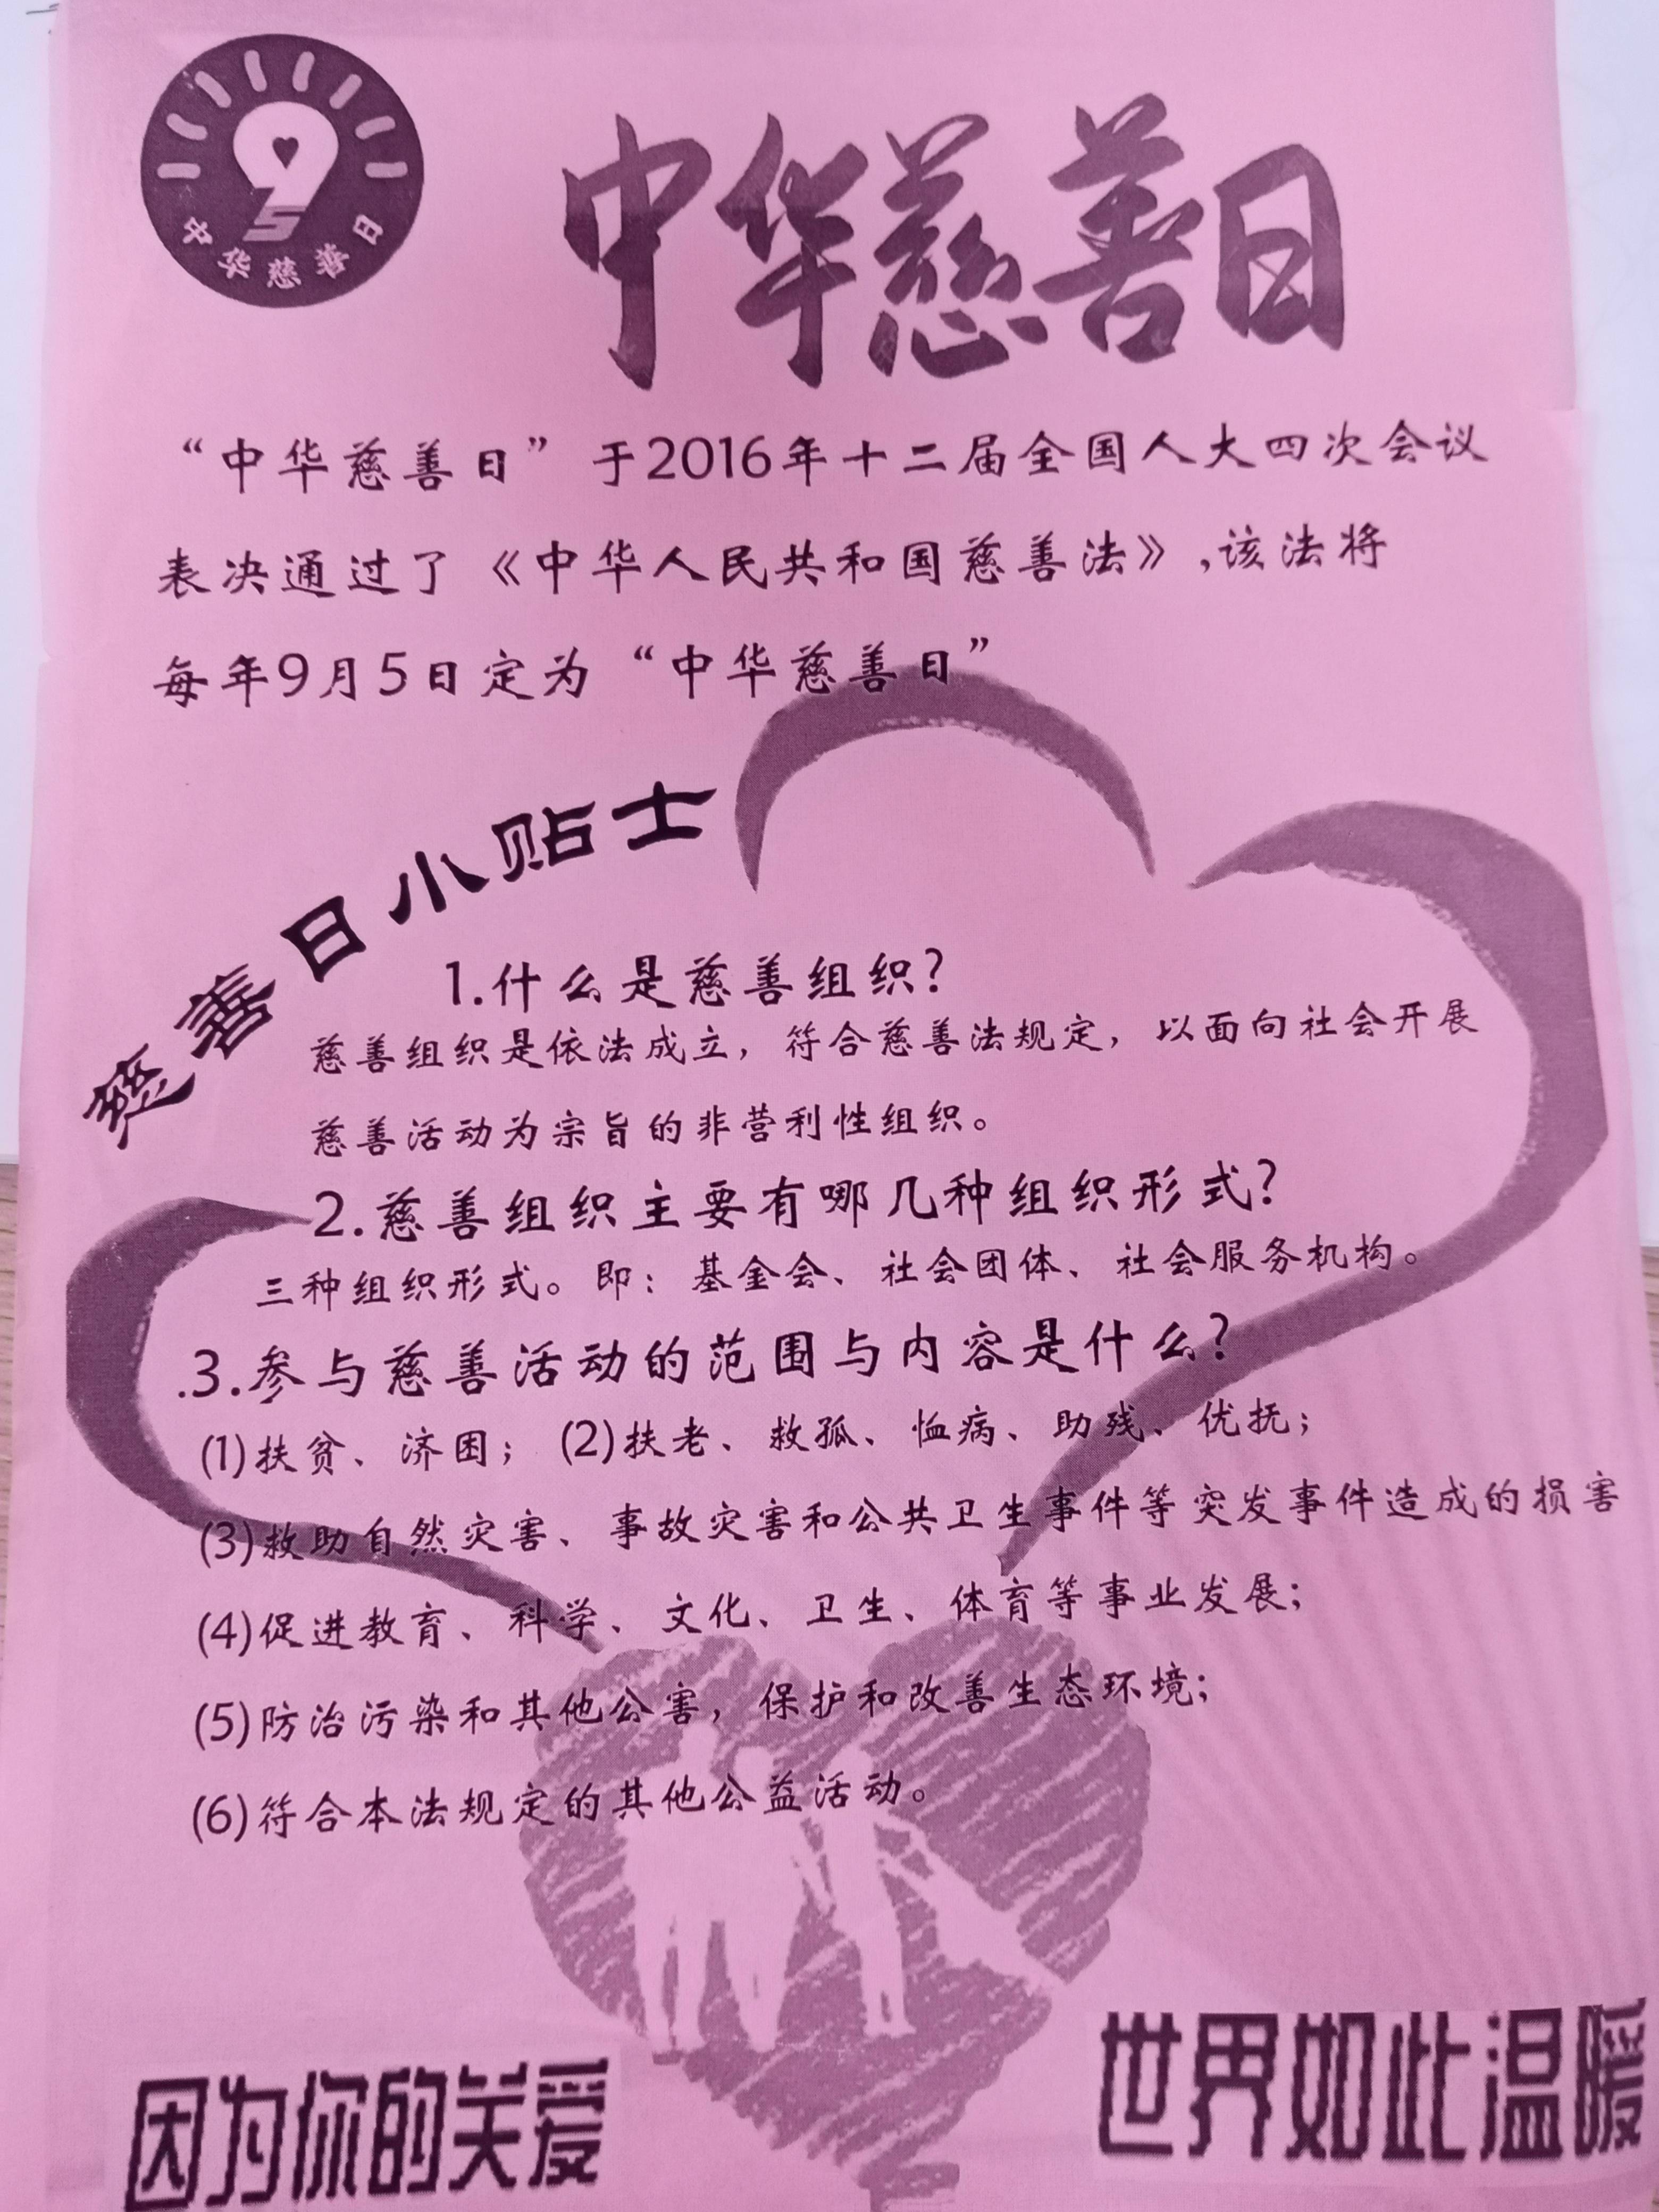 95
中华慈善日
中华慈善日
“中华慈善日”于2016年十二届全国人大四次会议
表决通过了《中华人民共和国慈善法》,该法将
每年9月5日定为“中华慈善日”
慈善日小贴士
1.什么是慈善组织?
慈善组织是依法成立，符合慈善法规定，以面向社会开展
慈善活动为宗旨的非营利性组织。
2.慈善组织主要有哪几种组织形式?
三种组织形式。即：基金会、社会团体、社会服务机构。
.3.参与慈善活动的范围与内容是什么?
(1)扶贫、济困；(2)扶老、救孤、恤病、助残、优抚；
(3)救助自然灾害、事故灾害和公共卫生事件等突发事件造成的损害
(4)促进教育、科学、文化、卫生、体育等事业发展；
(5)防治污染和其他公害，保护和改善生态环境；
(6)符合本法规定的其他公益活动。
因为你的关爱
世界如此温暖